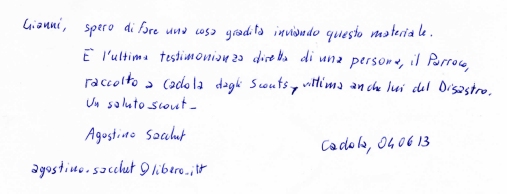 Gianni, spero di fare una cosa gradita inviando questo materiale.
È l'ultima testimonianza diretta di una persona, il Parroco,
raccolto a Cadola dagli Scouts, vittima anche lui del Disastro.
Un saluto scout -
Agostino Sacchet
Cadola, 04 06 13
agostino.sacchet@libero.it